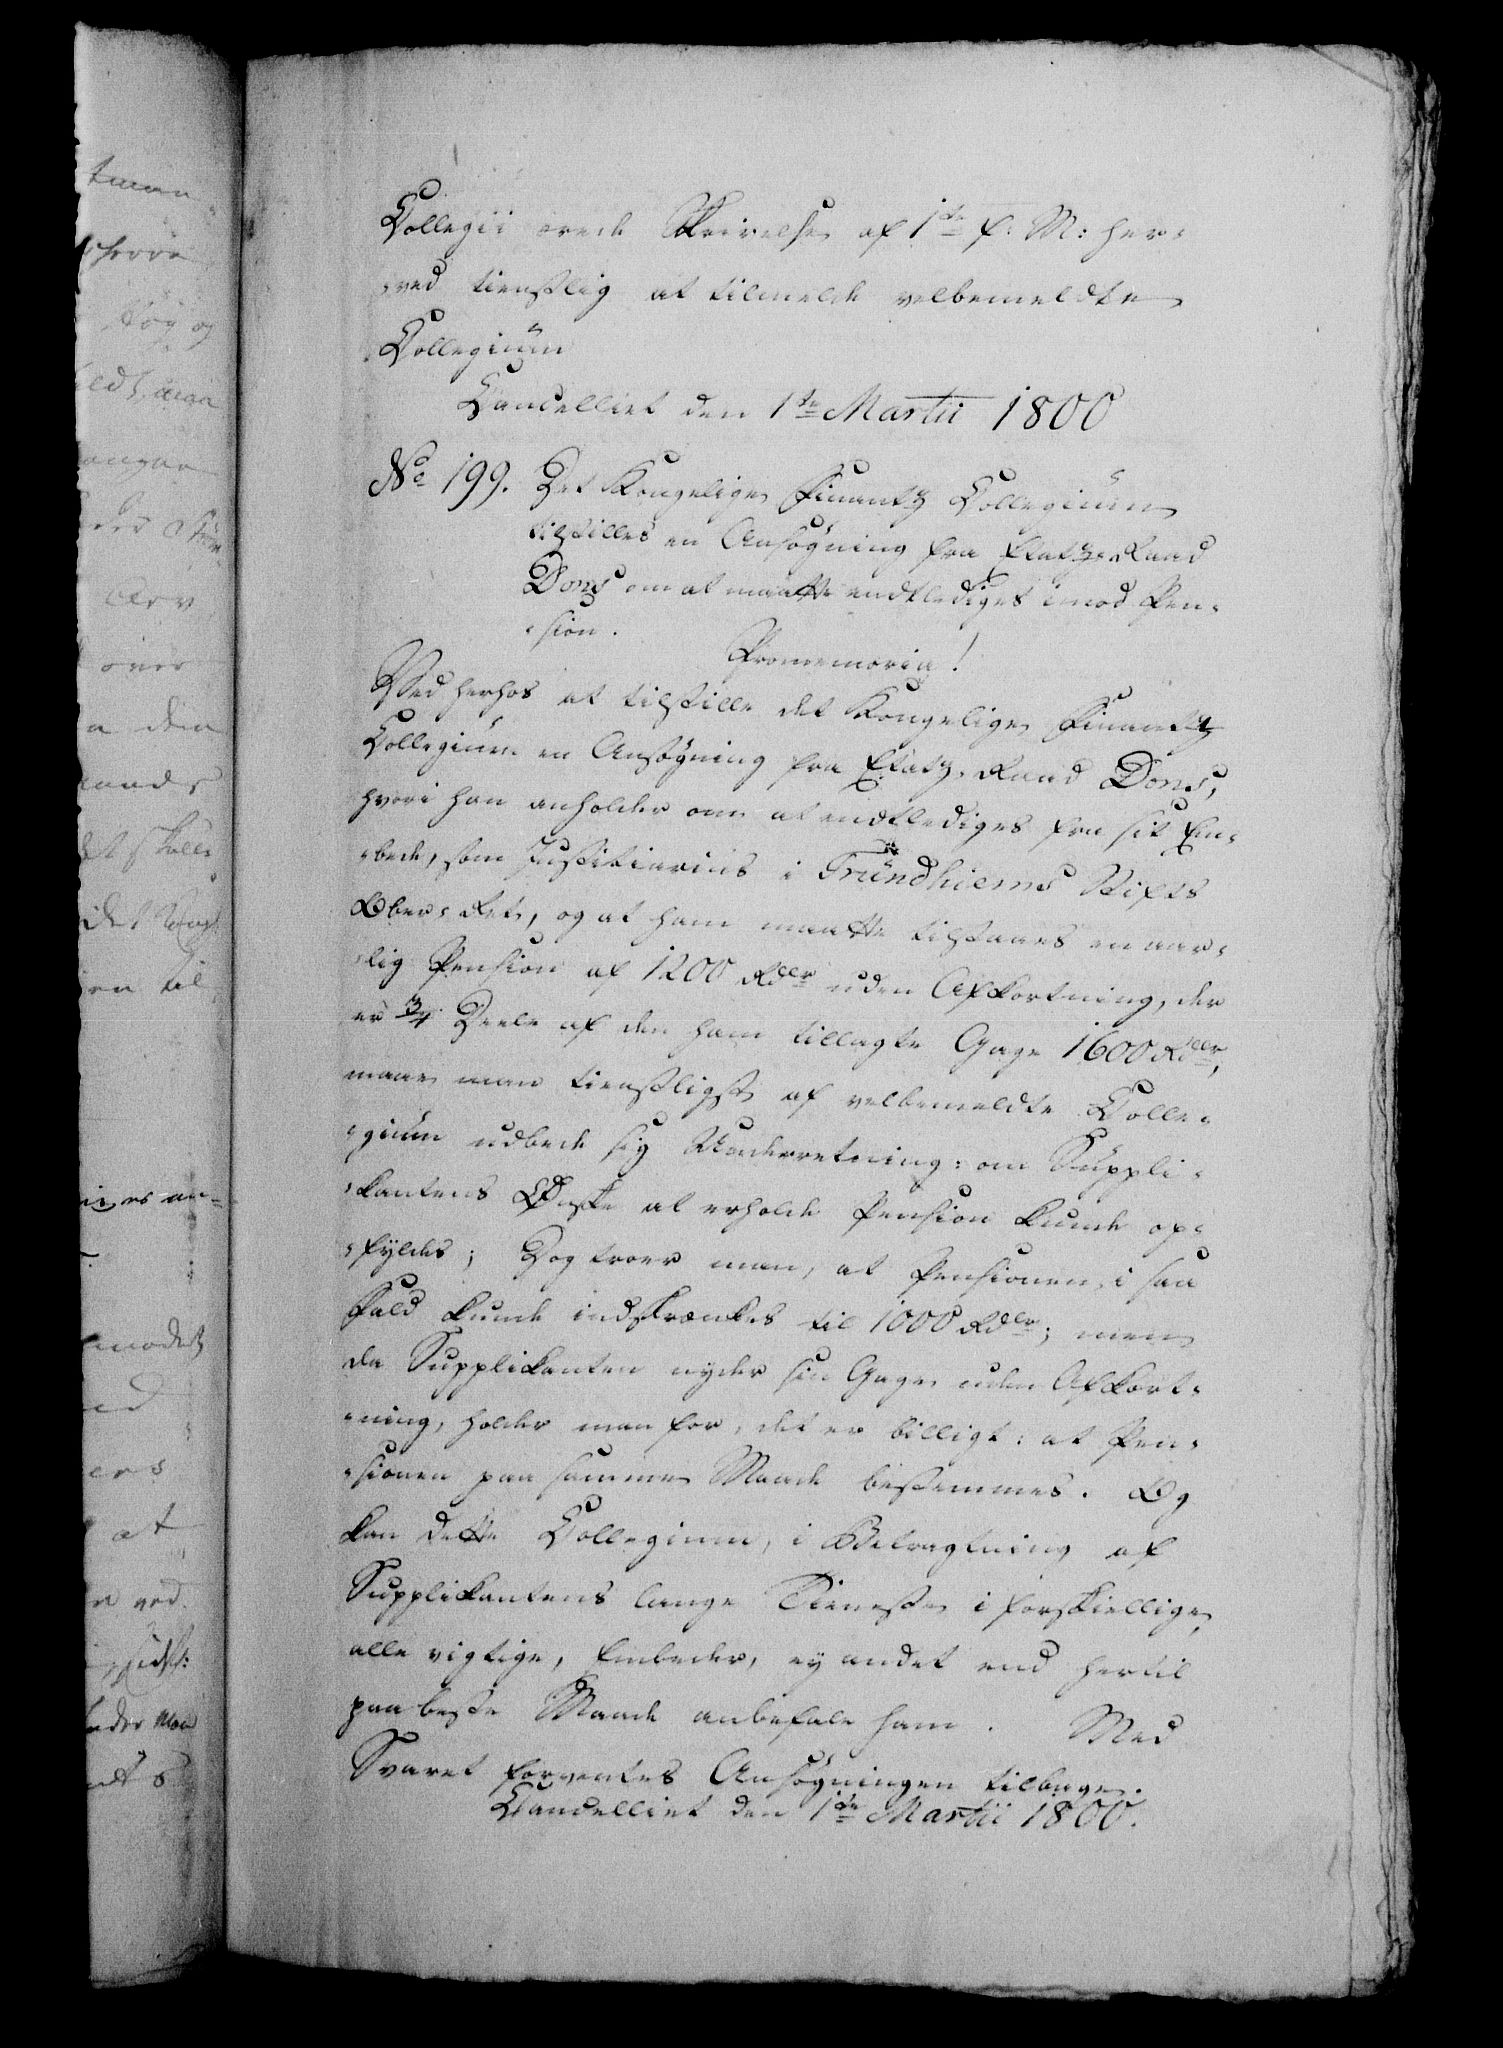 Collegii ærede Skrivelse af 1ste f: M: her-
-ved tienstlig at tilmelde velbemeldte
Collegium
Cancelliet den 1ste Martii 1800
No 199. Det Kongelige Finantz Collegium
tilstilles en Ansøgning fra Etatz-Raad
Dons om at maatte endtlediges imod Pen-
-sion.
Promemoria!
Ved herhos at tilstille det Kongelige Finantz
Collegium en Ansøgning fra Etatz-Raad Dons,
hvori han anholder om at endtlediges fra sit Em-
-bede, som Justitiarius i Trundhiems Stifts
Ober-Ret, og at ham maatte tilstaaes en aar-
-lig Pension af 1200 Rdlr uden Afkortning, der
er 3/4 Deele af den ham tillagte Gage 1600 Rdlr,
maae man tienstligst af velbemeldte Colle-
-gium udbede sig Underretning: om Suppli-
-kantens Ønske at erholde Pension kunde op-
-fyldes; Dog troer man, at Pensionen, i saa
Fald kunde indskrænkes til 1000 Rdlr; men
da Supplikanten nyder sin Gage uden Afkort-
-ning, holder man for, det er billigt: at Pen-
-sionen paa samme Maade bestemmes. Og
kan dette Collegium, i Betragtning af
Supplikantens lange Tieneste i forskiellige,
alle vigtige, Embeder, ey andet end hertil
paa beste Maade anbefale ham. Med
Svaret forventes Ansøgningen tilbage.
Cancelliet den 1ste Martii 1800.